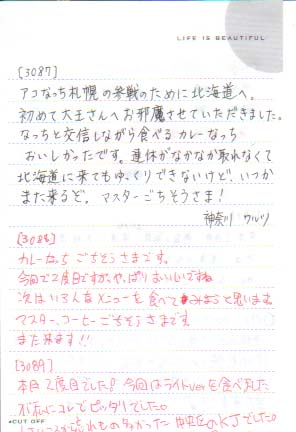 LIFE IS BEAUTIFUL
[3087]
アコなっち札幌の参戦のために北海道へ。
初めて大王さんへお邪魔させていただきました。
なっちと交信しながら食べるカレーなっち
おいしかったです。連休がなかなか取れなくて
北海道に来てもゆっくりできないけど、いつか
また来るぞ。マスターごちそうさま!
神奈川 ワルツ
[3088]
カレーなっち ごちそうさまです。
今回で2度目ですが、やっぱりおいしいですね
次はいろんなメニューを食べてみようと思います。
マスター、コーヒーごちそうさまです。
また来ます!!
[3089]
本日2度目でした! 今回はライトverを食べました
がおなかにコレでピッタリでした。
忘れもの
KJでした。
◂CUT OFF